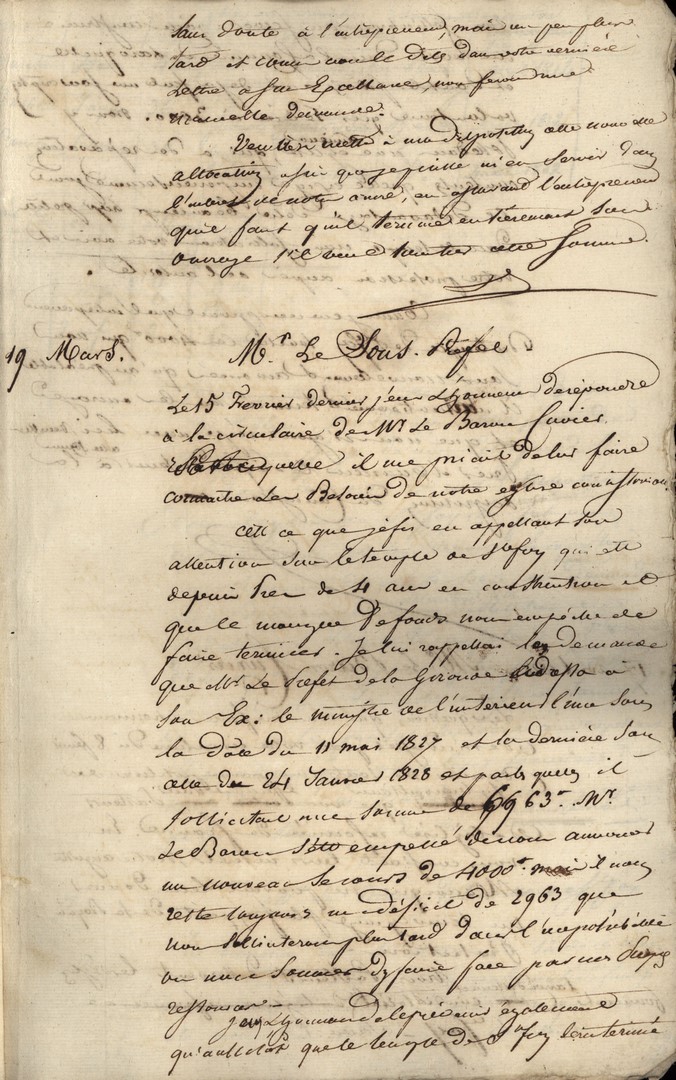 sans doute à l'entrepreneur, mais un peu plus
tard et comme vous le dites dans votre dernière
Lettre à son Excellence, nous ferons une
nouvelle demande.
Veuillez mettre à ma disposition cette nouvelle
allocation afin que je puisse m'en servir dans
l'intérêt de notre œuvre, en assurant l'entrepreneur
qu'il faut qu'il termine entièrement son
ouvrage s'il veut toucher cette somme.
19 Mars. Mr. Le Sous-Préfet
Le 15 Fevrier dernier j'eus L'honneur de répondre
à la circulaire de Mr Le Baron Cuvier
par laquelle il me priait de lui faire
connaître Les Besoins de notre eglise consistoriale.
C'est ce que je fis en appellant son
attention sur le temple de Ste foy qui est
depuis Près de 4 ans en construction et
que le manque De fonds nous empêche de
faire terminer. Je lui rappellai les demandes
que Mr Le Préfet de la Gironde adressa à
Son Ex: le ministre de l'interieur l'une sous
la date du 11 mai 1827 et la dernière sous
celle du 24 Janvier 1828 et par lesquelles il
sollicitait une somme de 6963 f. Mr.
Le Baron s'est empressé de nous annoncer
un nouveau secours de 4000 f. mais il nous
reste toujours un déficit de 2963 que
nous solliciterons plus tard dans l'impossibilité
où nous sommes d'y faire face par nos propres
ressources.
J'eus L'honneur de le prévenir également
qu'aussitôt que le temple de Ste foy serait terminé